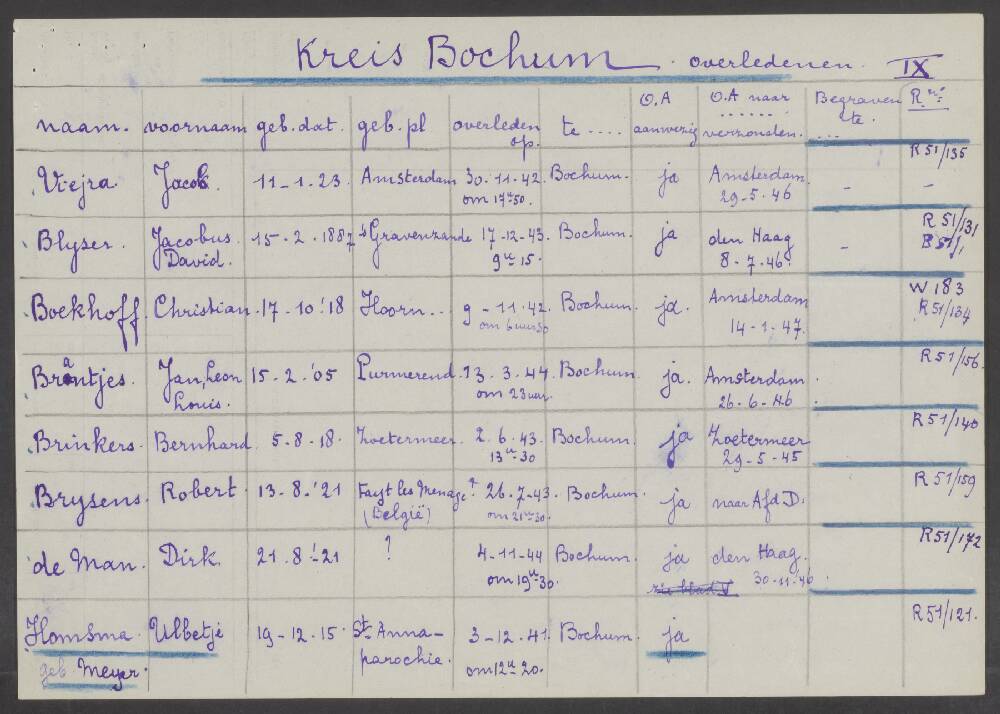 Kreis Bochum. overledenen. IX
naam. voornaam geb. dat. geb. pl overleden op. te .... O.A aanwezig O.A naar ...... verzonden. Begraven te. ... R nº:
R 51/135
Viejra. Jacob 11-1-23. Amsterdam 30-11-42. Bochum. ja Amsterdam. - -
om 17u50. 29-5-46
R 51/131
Blyser. Jacobus 15-2.1887 's Gravenzande 17-12-43. Bochum. ja den Haag -
David. 9u 15. 8-7-46.
W 183
Boekhoff. Christian 17-10.'18 Hoorn.. 9-11-42. Bochum. ja. Amsterdam R51/134
om 6 uur 50 14-1-47.
R51/156
Brantjes. Jan, Leon 15-2.'05 Purmerend. 13.3.44. Bochum. ja. Amsterdam.
Louis. om 23 uur. 26-6-46
R51/140
Brinkers. Bernhard. 5-8-18. Zoetermeer. 2.6.43. Bochum. ja Zoetermeer
13u-30 29-5-45
R 51/159
Brysens. Robert. 13-8.'21 Fayt les Menage? 26.7-43. Bochum. ja naar Afd D.
(België) om 21u30.
R51/172
de Man. Dirk. 21.8'-21 ? 4-11-44 Bochum. ja den Haag.
om 19u30. zie blad V 30-11-'46
R51/121.
Homsma. Ulbetje 19-12.15. St. Anna- 3-12.41. Bochum. ja
geb. Meyer. parochie. om 12u 20.